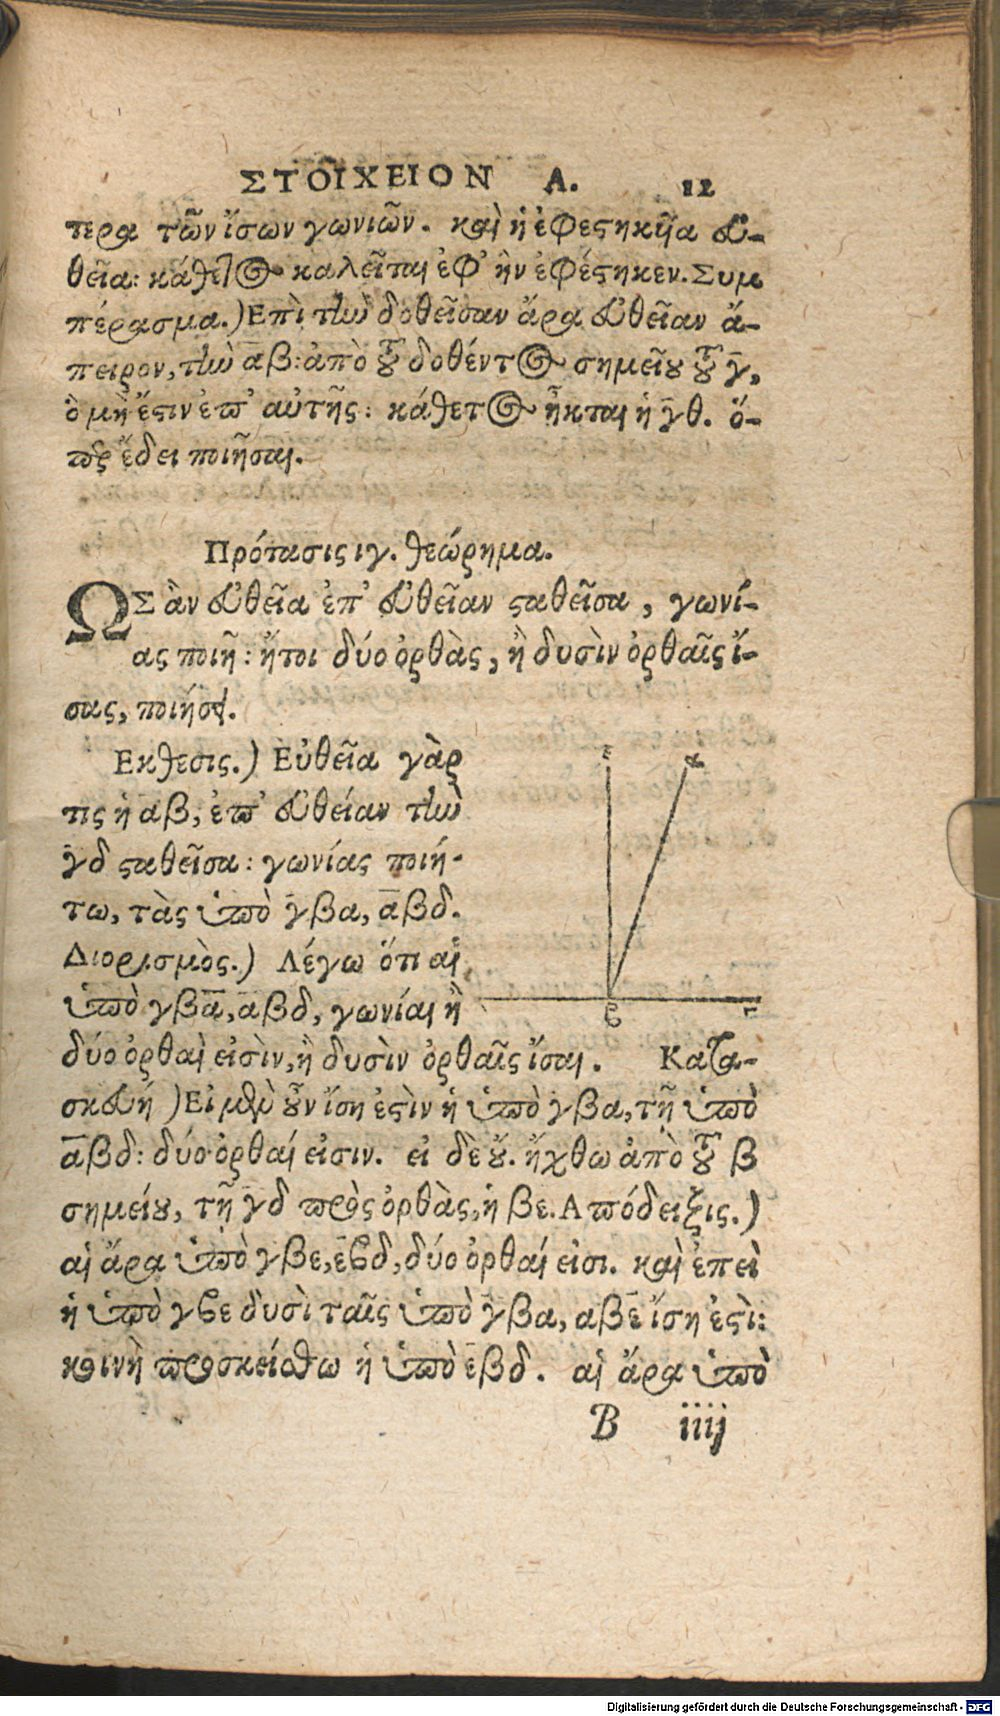 ΣΤΟΙΧΕΙΟΝ Α. 12
τερα τῶν ἴσων γωνιῶν. καὶ ἡ ἐφεστηκυῖα εὐ-
θεῖα: κάθετος καλεῖται ἐφ' ἣν ἐφέστηκεν. Συμ
πέρασμα.) Επὶ τὴν δοθεῖσαν ἄρα εὐθεῖαν ἄ-
πειρον, τὴν αβ: ἀπὸ τοῦ δοθέντος σημείου τοῦ γ,
ὃ μή ἐστιν ἐπ' αὐτῆς: κάθετος ἦκται ἡ γθ. ὅ-
περ ἔδει ποιῆσαι.
Πρότασις ιγ. θεώρημα.
ΩΣ ἂν εὐθεῖα ἐπ' εὐθεῖαν σταθεῖσα, γωνί-
ας ποιῇ: ἤτοι δύο ὀρθὰς, ἢ δυσὶν ὀρθαῖς ἴ-
σας, ποιήσει.
Εκθεσις.) Εὐθεῖα γάρ
τις ἡ αβ, ἐπ' εὐθείαν τὴν
γδ σταθεῖσα: γωνίας ποιή-
τω, τὰς ὑπὸ γβα, αβδ.
Διορισμὸς.) Λέγω ὅτι αἱ
ὑπὸ γβα, αβδ, γωνίαι ἢ
δύο ὀρθαὶ εἰσὶν, ἢ δυσὶν ὀρθαῖς ἴσαι. Κατα-
σκευή) Εἰ μὲν οὖν ἴση ἐστὶν ἡ ὑπὸ γβα, τῇ ὑπὸ
αβδ: δύο ὀρθαί εἰσιν. εἰ δὲ οὔ. ἤχθω ἀπὸ τοῦ β
σημείου, τῇ γδ πρὸς ὀρθὰς, ἡ βε. Απόδειξις.)
αἱ ἄρα ὑπὸ γβε, εβδ, δύο ὀρθαί εἰσι. καὶ ἐπεὶ
ἡ ὑπὸ γβε δυσὶ ταῖς ὑπὸ γβα, αβε ἴση ἐστὶ:
κοινὴ προσκείσθω ἡ ὑπὸ εβδ. αἱ ἄρα ὑπὸ
B iiij
ε α
β γ
Digitalisierung gefördert durch die Deutsche Forschungsgemeinschaft - DFG